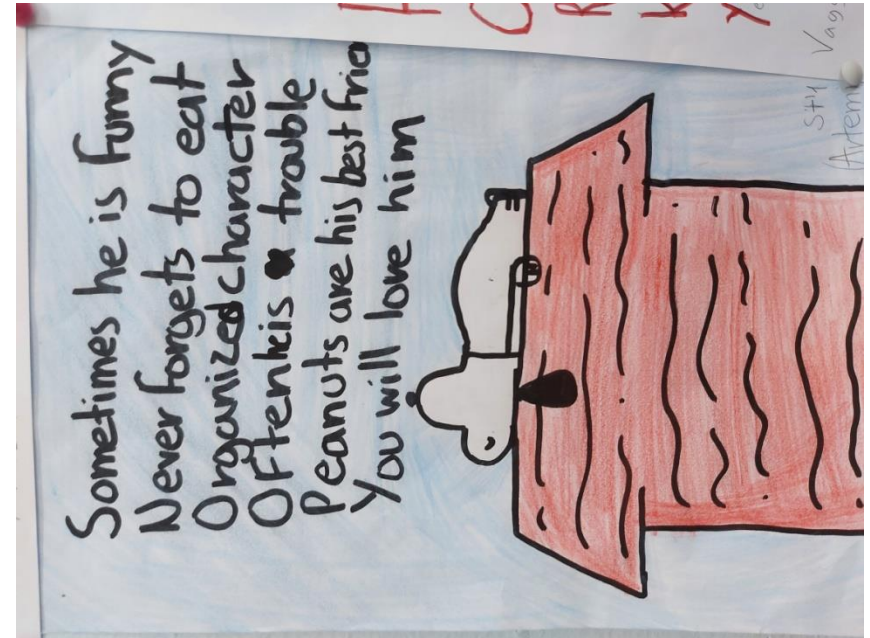 Sometimes he is funny
Never forgets to eat
Organized character
Often is a trouble
Peanuts are his best frie
You will love him